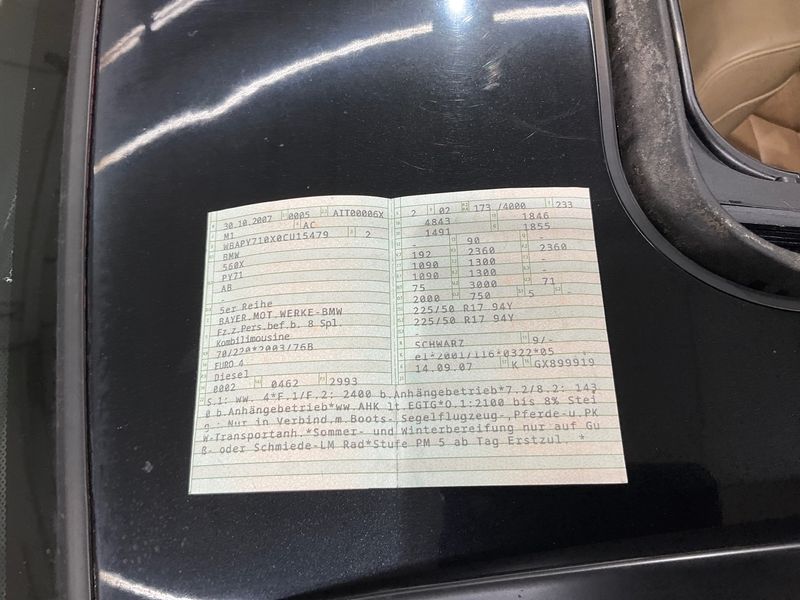 30.10.2007 0005 AIT00006X
M1 AC
WBAPY710X0CU15479 2
BMW
560X
PY71
AB
-
5er Reihe
BAYER.MOT.WERKE-BMW
Fz.z.Pers.bef.b. 8 Spl.
Kombilimousine
70/220*2003/76B
EURO 4
Diesel
0002 0462 2993
2 02 173 /4000 233
4843 1846
1491 1855
- 90 -
192 2360 2360
1090 1300 -
1090 1300 -
75 3000 71
2000 750 5 -
225/50 R17 94Y
225/50 R17 94Y
-
SCHWARZ 9/-
e1*2001/116*0322*05
14.09.07 K GX899919
S.1: ww. 4*F.1/F.2: 2400 b.Anhängebetrieb*7.2/8.2: 143
0 b.Anhängebetrieb*ww.AHK lt.EGTG*O.1:2100 bis 8% Stei
g.: Nur in Verbind.m.Boots-,Segelflugzeug-,Pferde-u.PK
W-Transportanh.*Sommer- und Winterbereifung nur auf Gu
ß- oder Schmiede-LM Rad*Stufe PM 5 ab Tag Erstzul. *